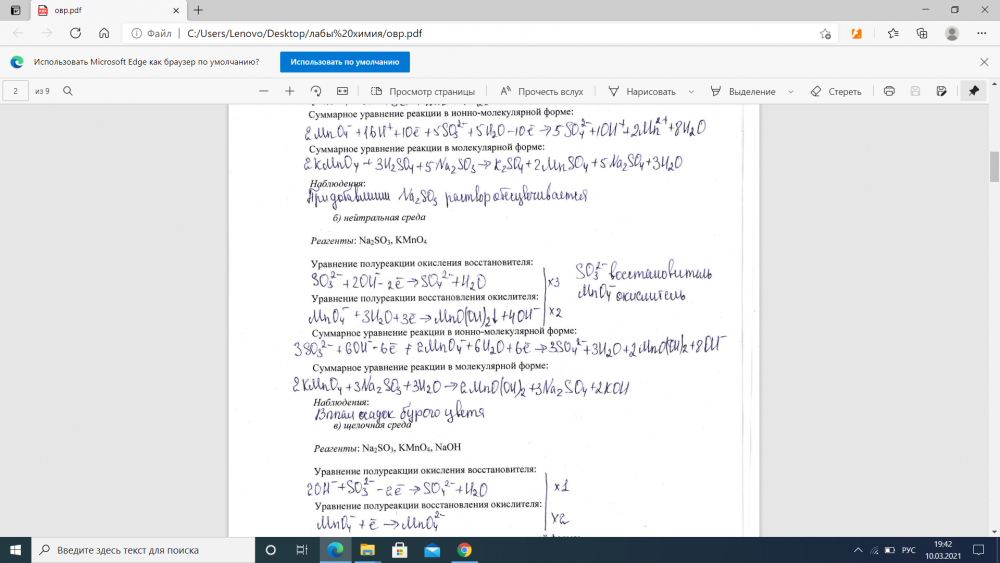 овр.pdf
Файл | C:/Users/Lenovo/Desktop/лабы%20химия/овр.pdf
Использовать Microsoft Edge как браузер по умолчанию? Использовать по умолчанию
2 из 9 Просмотр страницы Прочесть вслух Нарисовать Выделение Стереть
Суммарное уравнение реакции в ионно-молекулярной форме:
2MnO₄⁻+16H⁺+10ē+5SO₃²⁻+5H₂O-10ē→5SO₄²⁻+10H⁺+2Mn²⁺+8H₂O
Суммарное уравнение реакции в молекулярной форме:
2KMnO₄+3H₂SO₄+5Na₂SO₃→K₂SO₄+2MnSO₄+5Na₂SO₄+3H₂O
Наблюдения:
При добавлении Na₂SO₃ раствор обесцвечивается
б) нейтральная среда
Реагенты: Na₂SO₃, KMnO₄
Уравнение полуреакции окисления восстановителя:
SO₃²⁻+2OH⁻-2ē→SO₄²⁻+H₂O x3 SO₃²⁻ восстановитель
Уравнение полуреакции восстановления окислителя: MnO₄⁻ окислитель
MnO₄⁻+3H₂O+3ē→MnO(OH)₂↓+4OH⁻ x2
Суммарное уравнение реакции в ионно-молекулярной форме:
3SO₃²⁻+6OH⁻-6ē+2MnO₄⁻+6H₂O+6ē→3SO₄²⁻+3H₂O+2MnO(OH)₂+8OH⁻
Суммарное уравнение реакции в молекулярной форме:
2KMnO₄+3Na₂SO₃+3H₂O→2MnO(OH)₂+3Na₂SO₄+2KOH
Наблюдения:
Выпал осадок бурого цвета
в) щелочная среда
Реагенты: Na₂SO₃, KMnO₄, NaOH
Уравнение полуреакции окисления восстановителя:
2OH⁻+SO₃²⁻-2ē→SO₄²⁻+H₂O x1
Уравнение полуреакции восстановления окислителя:
MnO₄⁻+ē→MnO₄²⁻ x2
Введите здесь текст для поиска
РУС
19:42
10.03.2021